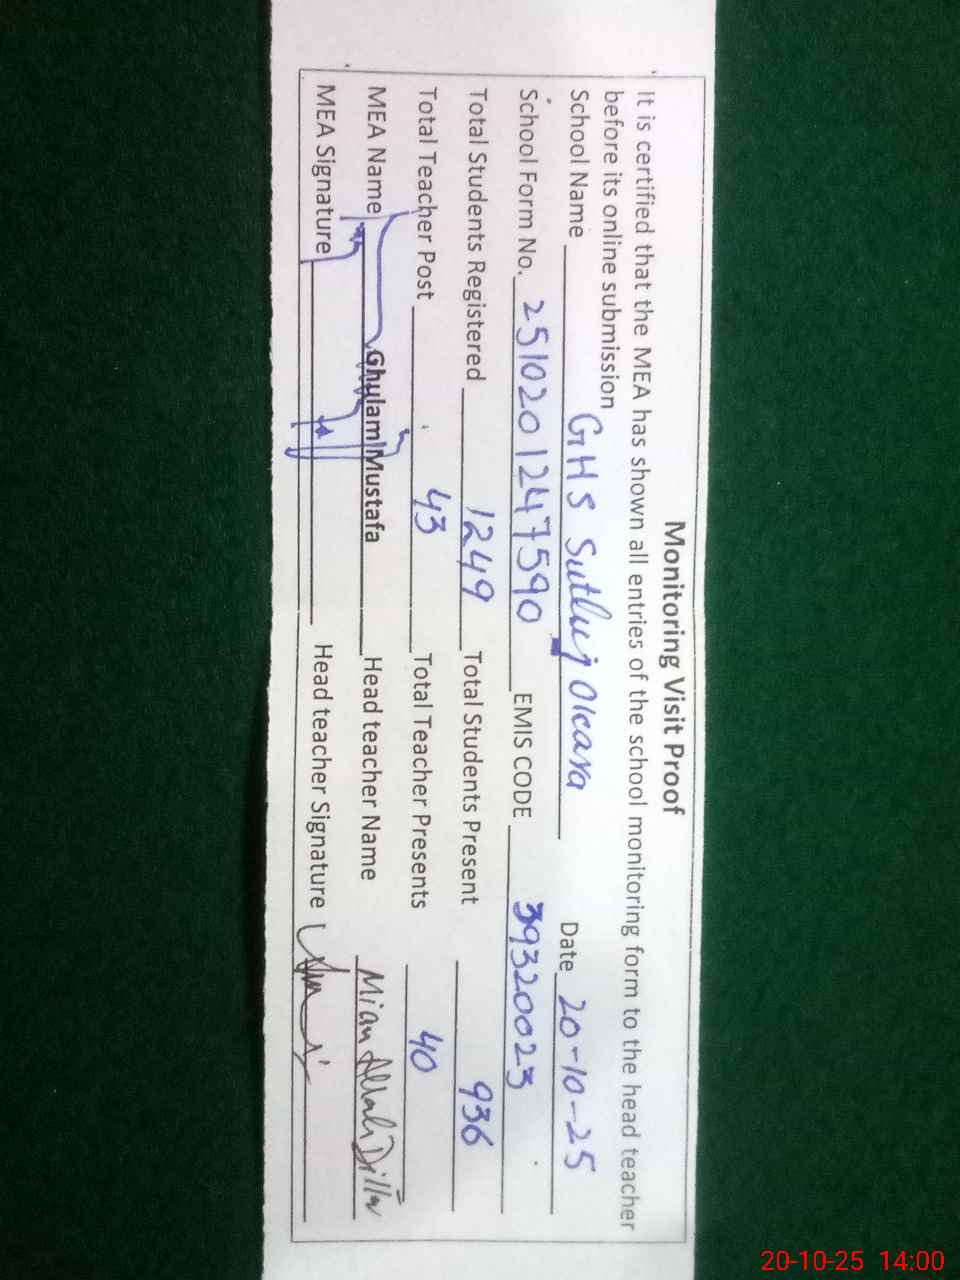 Monitoring Visit Proof
It is certified that the MEA has shown all entries of the school monitoring form to the head teacher
before its online submission
School Name GHS Sutluj Okara Date 20-10-25
School Form No. 2510201247590 EMIS CODE 39320023
Total Students Registered 1249 Total Students Present 936
Total Teacher Post 43 Total Teacher Presents 40
MEA Name Ghulam Mustafa Head teacher Name Mian Allah Ditta
MEA Signature Head teacher Signature
20-10-25 14:00